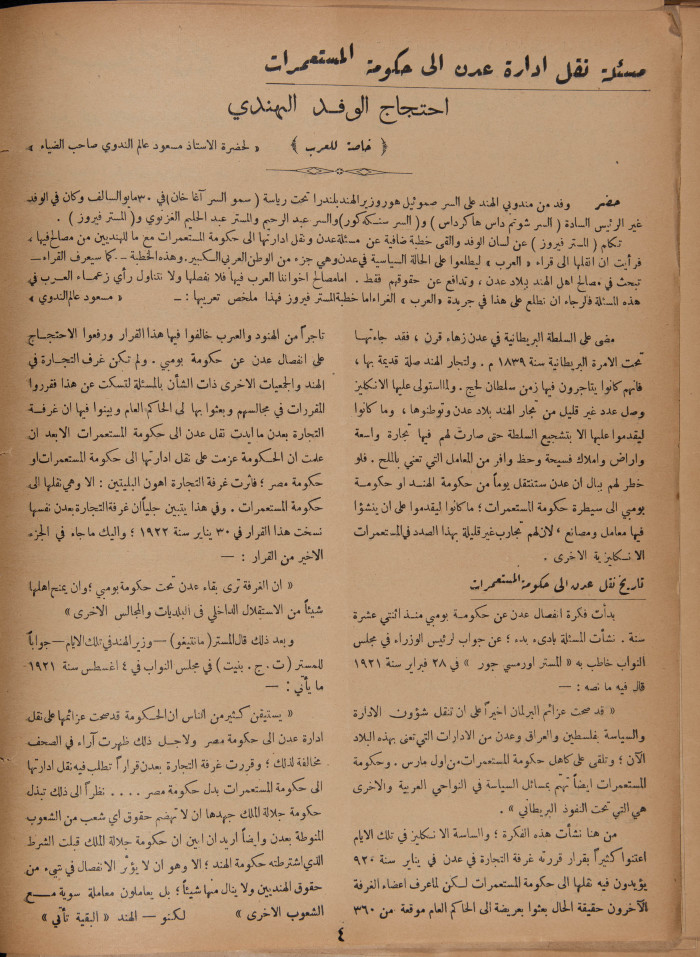 مسئلة نقل ادارة عدن الى حكومة المستعمرات
احتجاج الوفد الهندي
﴿ خاصة للعرب ﴾ « لحضرة الاستاذ مسعود عالم الندوي صاحب الضياء »
حضر وفد من مندوبي الهند على السر صموئيل هور وزير الهند بلندرا تحت رياسة (سمو السر آغا خان) في ٣٠ مايو السالف وكان في الوفد
غير الرئيس السادة (السر شوتم داس هاكرداس) و(السر سنكه كور) والسر عبد الرحيم والمستر عبد الحليم الغزنوي و(المستر فيروز) .
تكلم (المستر فيروز) عن لسان الوفد والقى خطبة ضافية عن مسئلة عدن ونقل ادارتها الى حكومة المستعمرات مع ما للهنديين من مصالح فيها ،
فرأيت ان انقلها الى قراء « العرب » ليطلعوا على الحالة السياسية في عدن وهي جزء من الوطن العربي الكبير . وهذه الخطبة — كما سيعرف القراء —
تبحث في مصالح اهل الهند ببلاد عدن ، وتدافع عن حقوقهم فقط . اما مصالح اخواننا العرب فيها فلا نفصلها ولا نتناول رأي زعماء العرب في
هذه المسئلة فالرجاء ان نطلع على هذا في جريدة « العرب » الغراء اما خطبة المستر فيروز فهذا ملخص تعريبها : — « مسعود عالم الندوي »
مضى على السلطة البريطانية في عدن زهاء قرن ، فقد جاءتها
تحت الامرة البريطانية سنة ١٨٣٩ م . ولتجار الهند صلة قديمة بها ،
فانهم كانوا يتاجرون فيها زمن سلطان لحج . ولما استولى عليها الانكليز
وصل عدد غير قليل من تجار الهند بلاد عدن وتوطنوها ، وما كانوا
ليقدموا عليها الا بتشجيع السلطة حتى صارت لهم فيها تجارة واسعة
واراض واملاك فسيحة وحظ وافر من المعامل التي تعني بالملح . فلو
خطر لهم ببال ان عدن ستنتقل يوماً من حكومة الهند او حكومة
بومبي الى سيطرة حكومة المستعمرات ؛ ما كانوا ليقدموا على ان ينشؤا
فيها معامل ومصانع ، لان لهم تجارب غير قليلة بهذا الصدد في المستعمرات
الانكليزية الاخرى .
تاريخ نقل عدن الى حكومة المستعمرات
بدأت فكرة انفصال عدن عن حكومة بومبي منذ اثنتي عشرة
سنة . نشأت المسئلة بادىء بدء ؛ عن جواب لرئيس الوزراء في مجلس
النواب خاطب به « المستر اورمسي جور » في ٢٨ فبراير سنة ١٩٢١
قال فيه ما نصه : —
« قد صحت عزائم البرلمان اخيراً على ان تنقل شؤون الادارة
والسياسة بفلسطين والعراق وعدن من الادارات التي تعنى بهذه البلاد
الآن ؛ وتلقى على كاهل حكومة المستعمرات من اول مارس . وحكومة
المستعمرات ايضاً تهتم بمسائل السياسة في النواحي العربية والاخرى
هي التي تحت النفوذ البريطاني » .
من هنا نشأت هذه الفكرة ؛ والساسة الانكليز في تلك الايام
اعتنوا كثيراً بقرار قررته غرفة التجارة في عدن في يناير سنة ٩٢٠
يؤيدون فيه نقلها الى حكومة المستعمرات لكن لما عرف اعضاء الغرفة
الآخرون حقيقة الحال بعثوا بعريضة الى الحاكم العام موقعة من ٣٦٠
تاجراً من الهنود والعرب خالفوا فيها هذا القرار ورفعوا الاحتجاج
على انفصال عدن عن حكومة بومبي . ولم تكن غرف التجارة في
الهند والجمعيات الاخرى ذات الشأن بالمسئلة لتسكت عن هذا فقرروا
المقررات في مجالسهم وبعثوا بها الى الحاكم العام وبينوا فيها ان غرفة
التجارة بعدن ما ايدت نقل عدن الى حكومة المستعمرات الا بعد ان
علمت ان الحكومة عزمت على نقل ادارتها الى حكومة المستعمرات او
حكومة مصر ؛ فآثرت غرفة التجارة اهون البليتين : الا وهي نقلها الى
حكومة المستعمرات . وفي هذا يتبين جلياً ان غرفة التجارة بعدن نفسها
نسخت هذا القرار في ٣٠ يناير سنة ١٩٢٢ ؛ واليك ما جاء في الجزء
الاخير من القرار : —
« ان الغرفة ترى بقاء عدن تحت حكومة بومبي ؛ وان يمنح اهلها
شيئاً من الاستقلال الداخلي في البلديات والمجالس الاخرى »
وبعد ذلك قال المستر (مانتيغو) — وزير الهند في تلك الايام — جواباً
للمستر (ت . ج . بنيت) في مجلس النواب في ٤ اغسطس سنة ١٩٢١
ما يأتي : —
« يستيقن كثير من الناس ان الحكومة قد صحت عزائمها على نقل
ادارة عدن الى حكومة مصر ولاجل ذلك ظهرت آراء في الصحف
مخالفة لذلك ؛ وقررت غرفة التجارة بعدن قراراً تطلب فيه نقل ادارتها
الى حكومة المستعمرات بدل حكومة مصر . . . . نظراً الى ذلك تبذل
حكومة جلالة الملك جهدها ان لا تهضم حقوق اي شعب من الشعوب
المنوطة بعدن وايضاً اريد ان ابين ان حكومة جلالة الملك قبلت الشرط
الذي اشترطته حكومة الهند ؛ الا وهو ان لا يؤثر الانفصال في شيء من
حقوق الهنديين ولا ينال منها شيئاً ؛ بل يعاملون معاملة سوية مع
الشعوب الاخرى » لكنو — الهند « البقية تأتي »
٤